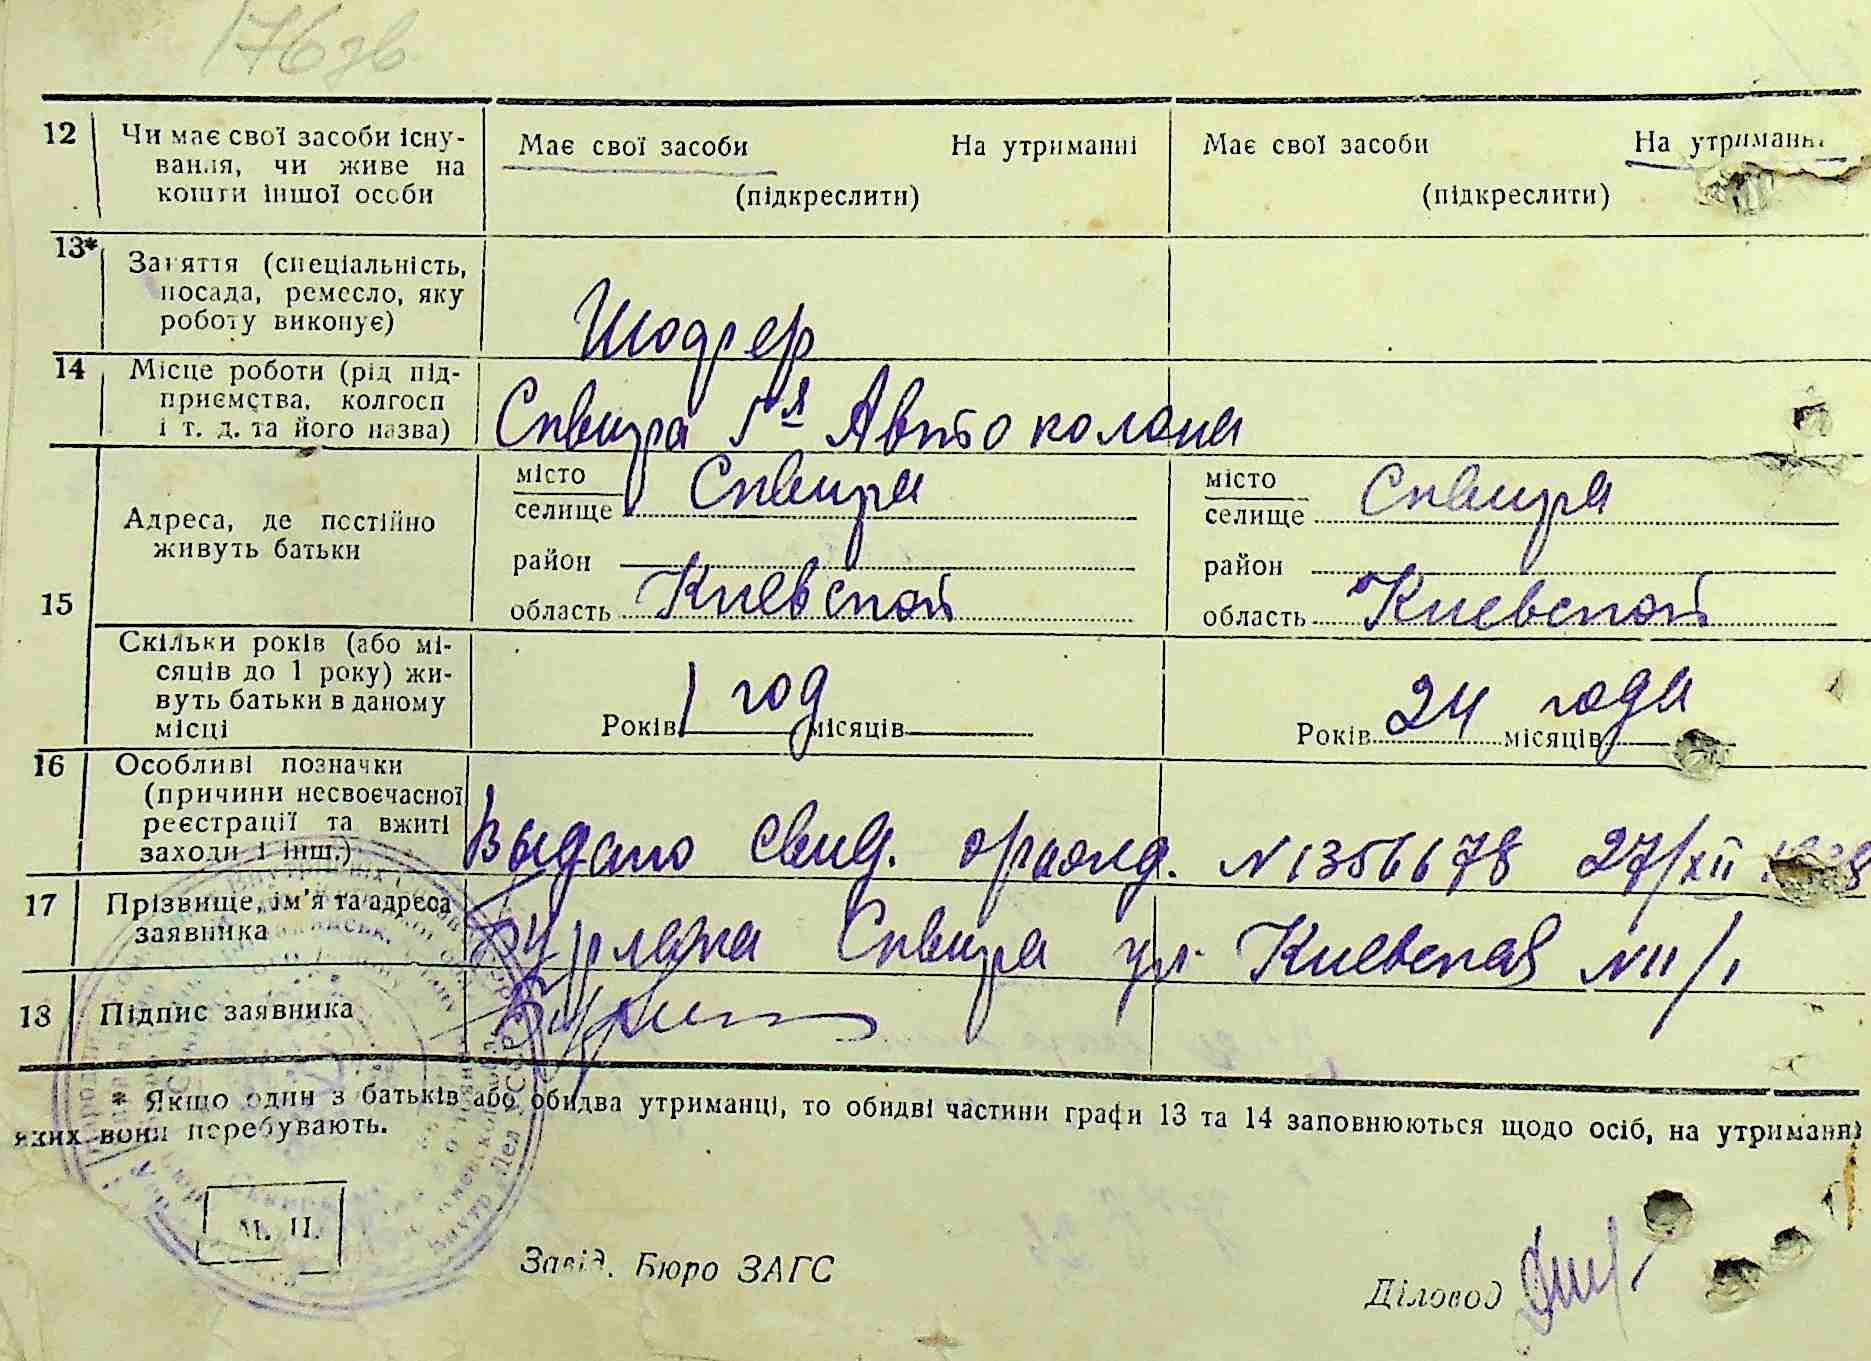 176 зв
12 Чи має свої засоби існу-
вання, чи живе на
кошти іншої особи
Має свої засоби На утриманні
(підкреслити)
Має свої засоби На утриманні
(підкреслити)
13* Заняття (спеціальність,
посада, ремесло, яку
роботу виконує)
Шофер
14 Місце роботи (рід під-
приємства, колгосп
і т. д. та його назва)
Сквира 1я Автоколона
15 Адреса, де постійно
живуть батьки
місто
селище Сквира
район
область Киевской
місто
селище Сквира
район
область Киевской
Скільки років (або мі-
сяців до 1 року) жи-
вуть батьки в даному
місці
Років 1 год місяців
Років 24 года місяців
16 Особливі позначки
(причини несвоєчасної
реєстрації та вжиті
заходи і інш.)
Выдано свид. N 1356678 27/XII
17 Прізвище, ім'я та адреса
заявника
Бурлака Сквира ул. Киевская N 11/1
18 Підпис заявника
* Якщо один з батьків або обидва утриманці, то обидві частини графи 13 та 14 заповнюються щодо осіб, на утриманні
яких вони перебувають.
М. П.
Завід. Бюро ЗАГС
Діловод